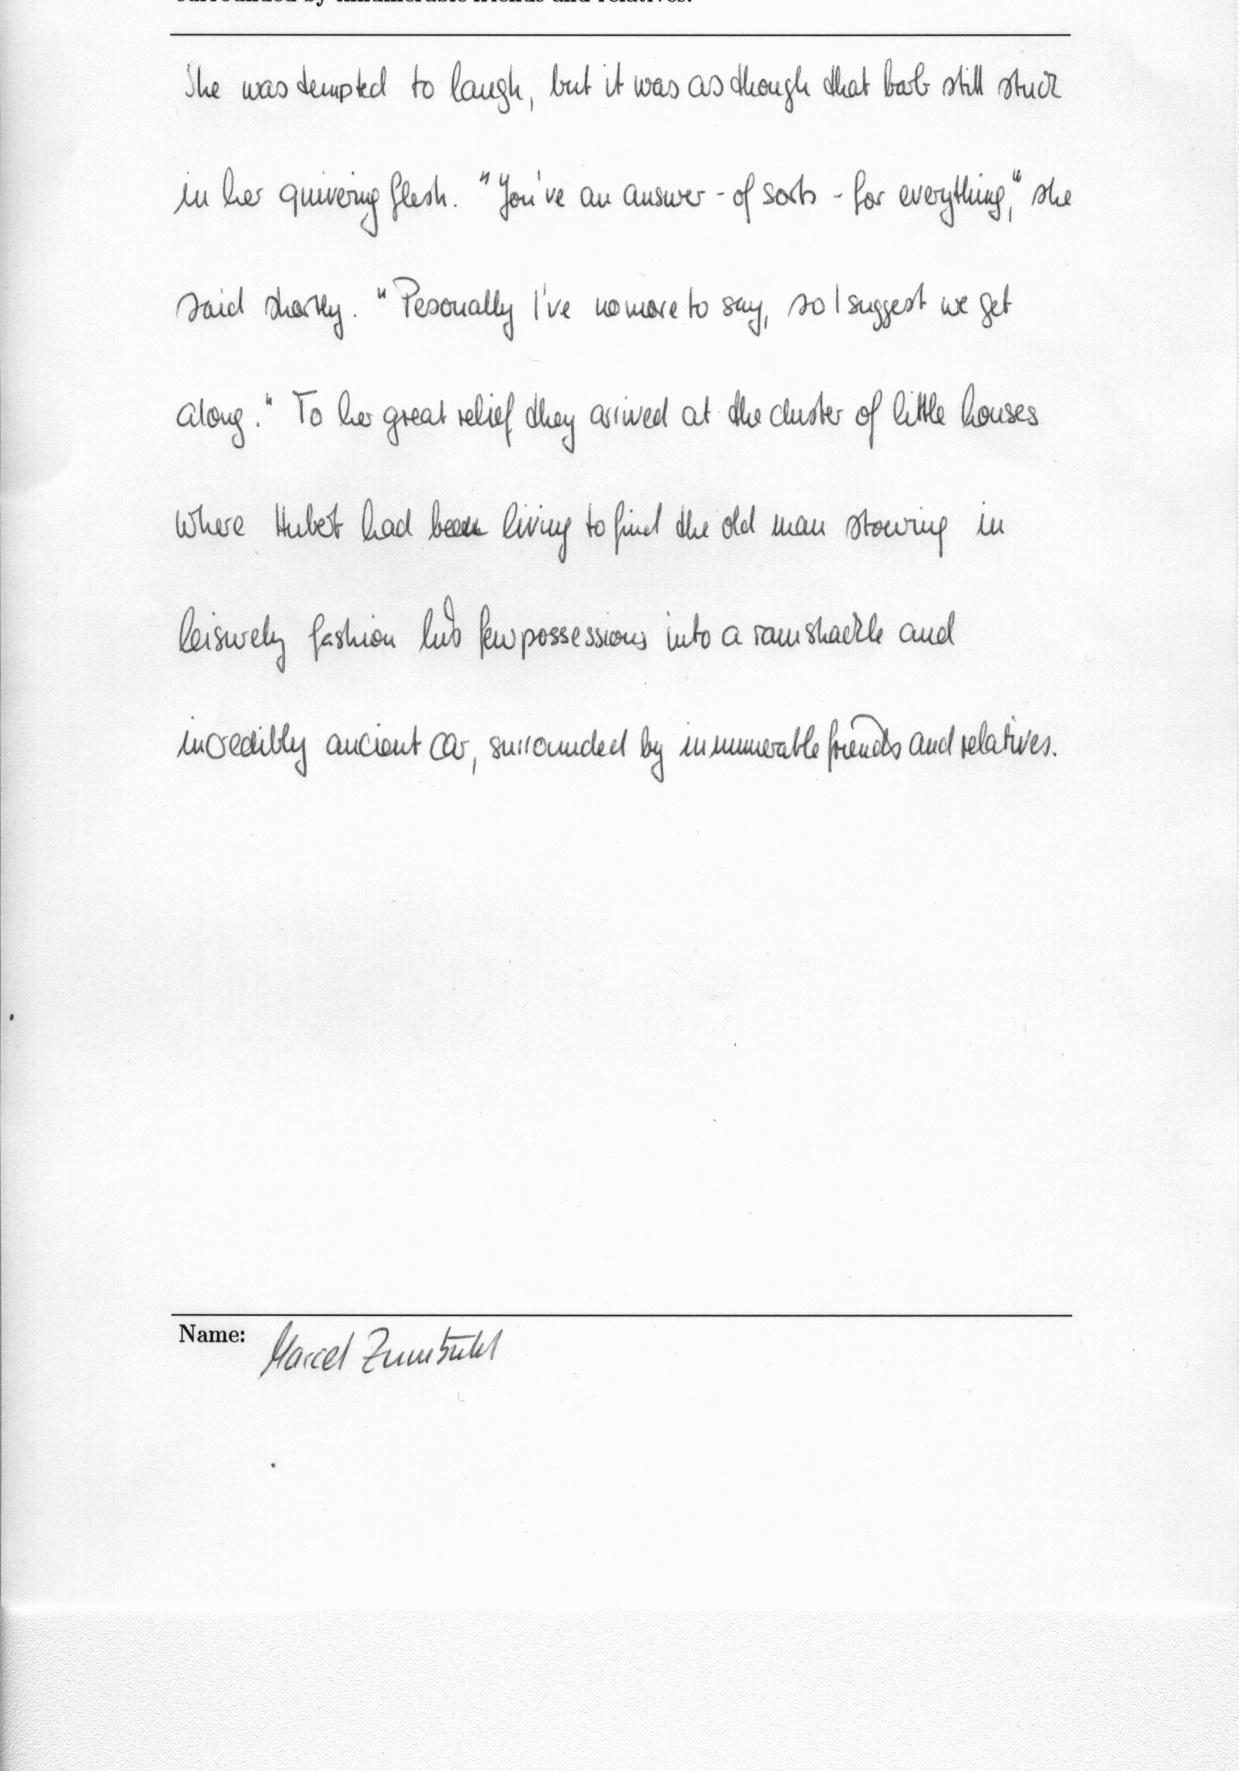 surrounded by innumerable friends and relatives.
She was tempted to laugh, but it was as though that barb still stuck
in her quivering flesh. "You've an answer - of sorts - for everything," she
said shortly. "Pesonally I've no more to say, so I suggest we get
along." To her great relief they arrived at the cluster of little houses
where Hubert had been living to find the old man stowing in
leisurely fashion his few possessions into a ramshackle and
incredibly ancient car, surrounded by innumerable friends and relatives.
Name: Marcel Zumbühl